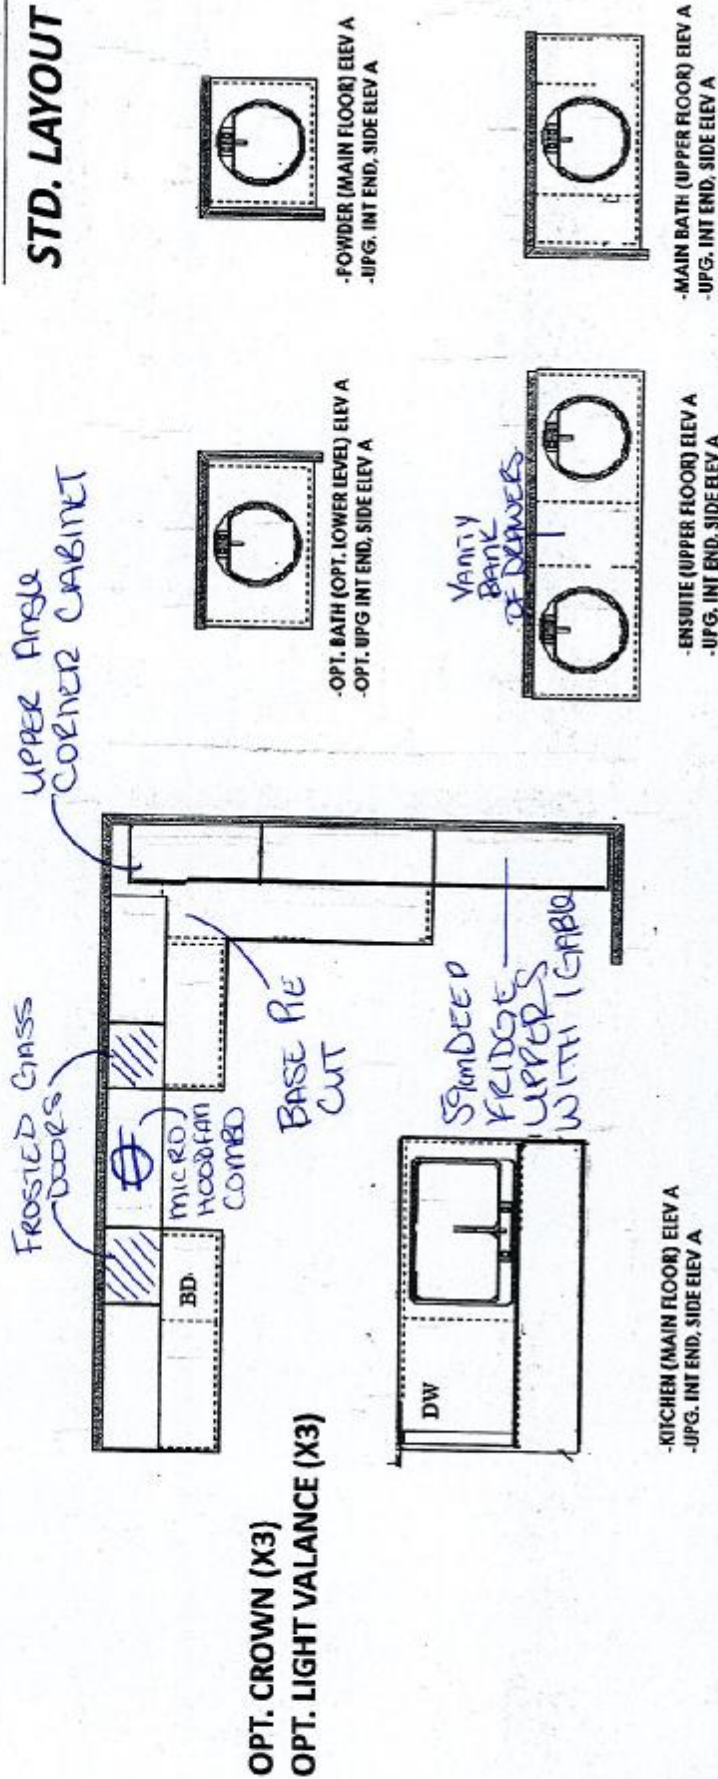 STD. LAYOUT
UPPER Angle
CORNER CABINET
FROSTED GLASS
DOORS
MICRO
HOODFAN
COMBO
BD
BASE PIE
CUT
DEEP
FRIDGE
UPPERS
WITH 1 GABLE
DW
OPT. CROWN (X3)
OPT. LIGHT VALANCE (X3)
-KITCHEN (MAIN FLOOR) ELEV A
-UPG. INT END, SIDE ELEV A
-OPT. BATH (OPT. LOWER LEVEL) ELEV A
-OPT. UPG INT END, SIDE ELEV A
-POWDER (MAIN FLOOR) ELEV A
-UPG. INT END, SIDE ELEV A
VANITY
BANK
OF DRAWERS
-ENSUITE (UPPER FLOOR) ELEV A
-UPG. INT END, SIDE ELEV A
-MAIN BATH (UPPER FLOOR) ELEV A
-UPG. INT END, SIDE ELEV A